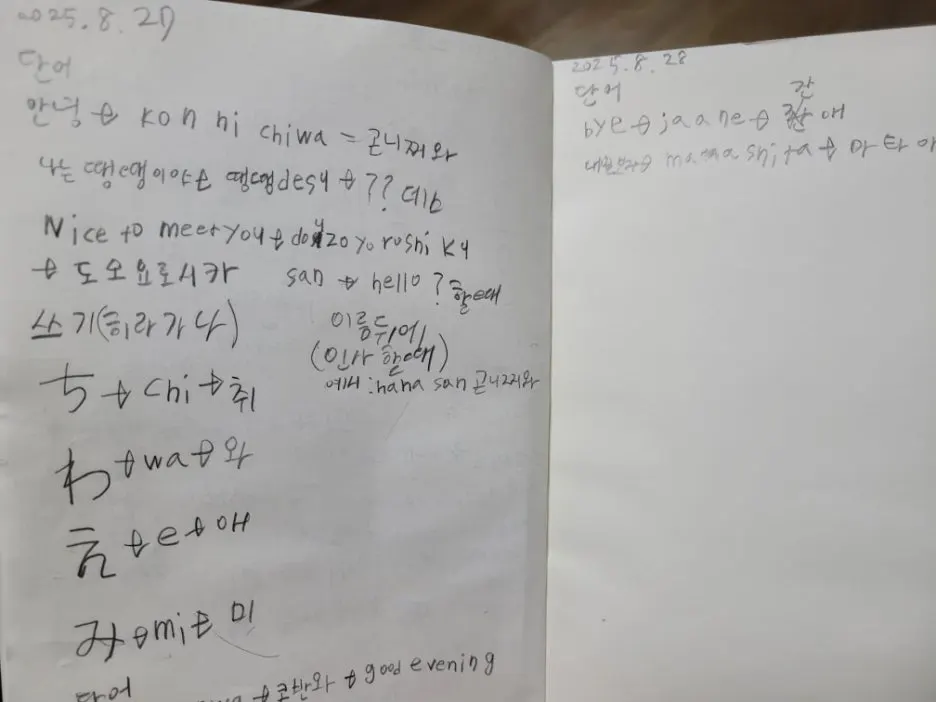 2025.8.27
단어
안녕 → kon ni chiwa = 곤니찌와
나는 땡땡이야 → 땡땡desu → ?? 데스
Nice to meet you → douzo yoroshi ku
→ 도오요로시카
san → hello? 할때
이름뒤에
(인사 할때)
예시 : hana san 곤니찌와
쓰기(히라가나)
ち → chi → 취
わ → wa → 와
え → e → 애
み → mi → 미
단어
→ 곤반와 → good evening
2025.8.28
단어
bye → jaane → 쟌 애
→ → 마 타 아